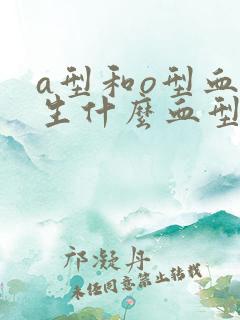 a型和o型血
生什麼血型
邝凝丹
未经同意禁止转载